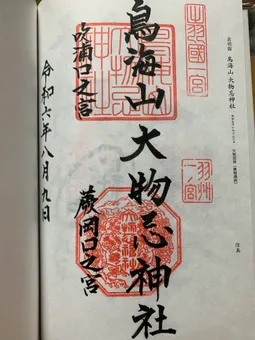 出羽國一宮
鳥海山 大物忌神社
出羽國一宮
鳥海山大物忌神社
吹浦口之宮
蕨岡口之宮
令和六年八月九日
羽州一ノ宮